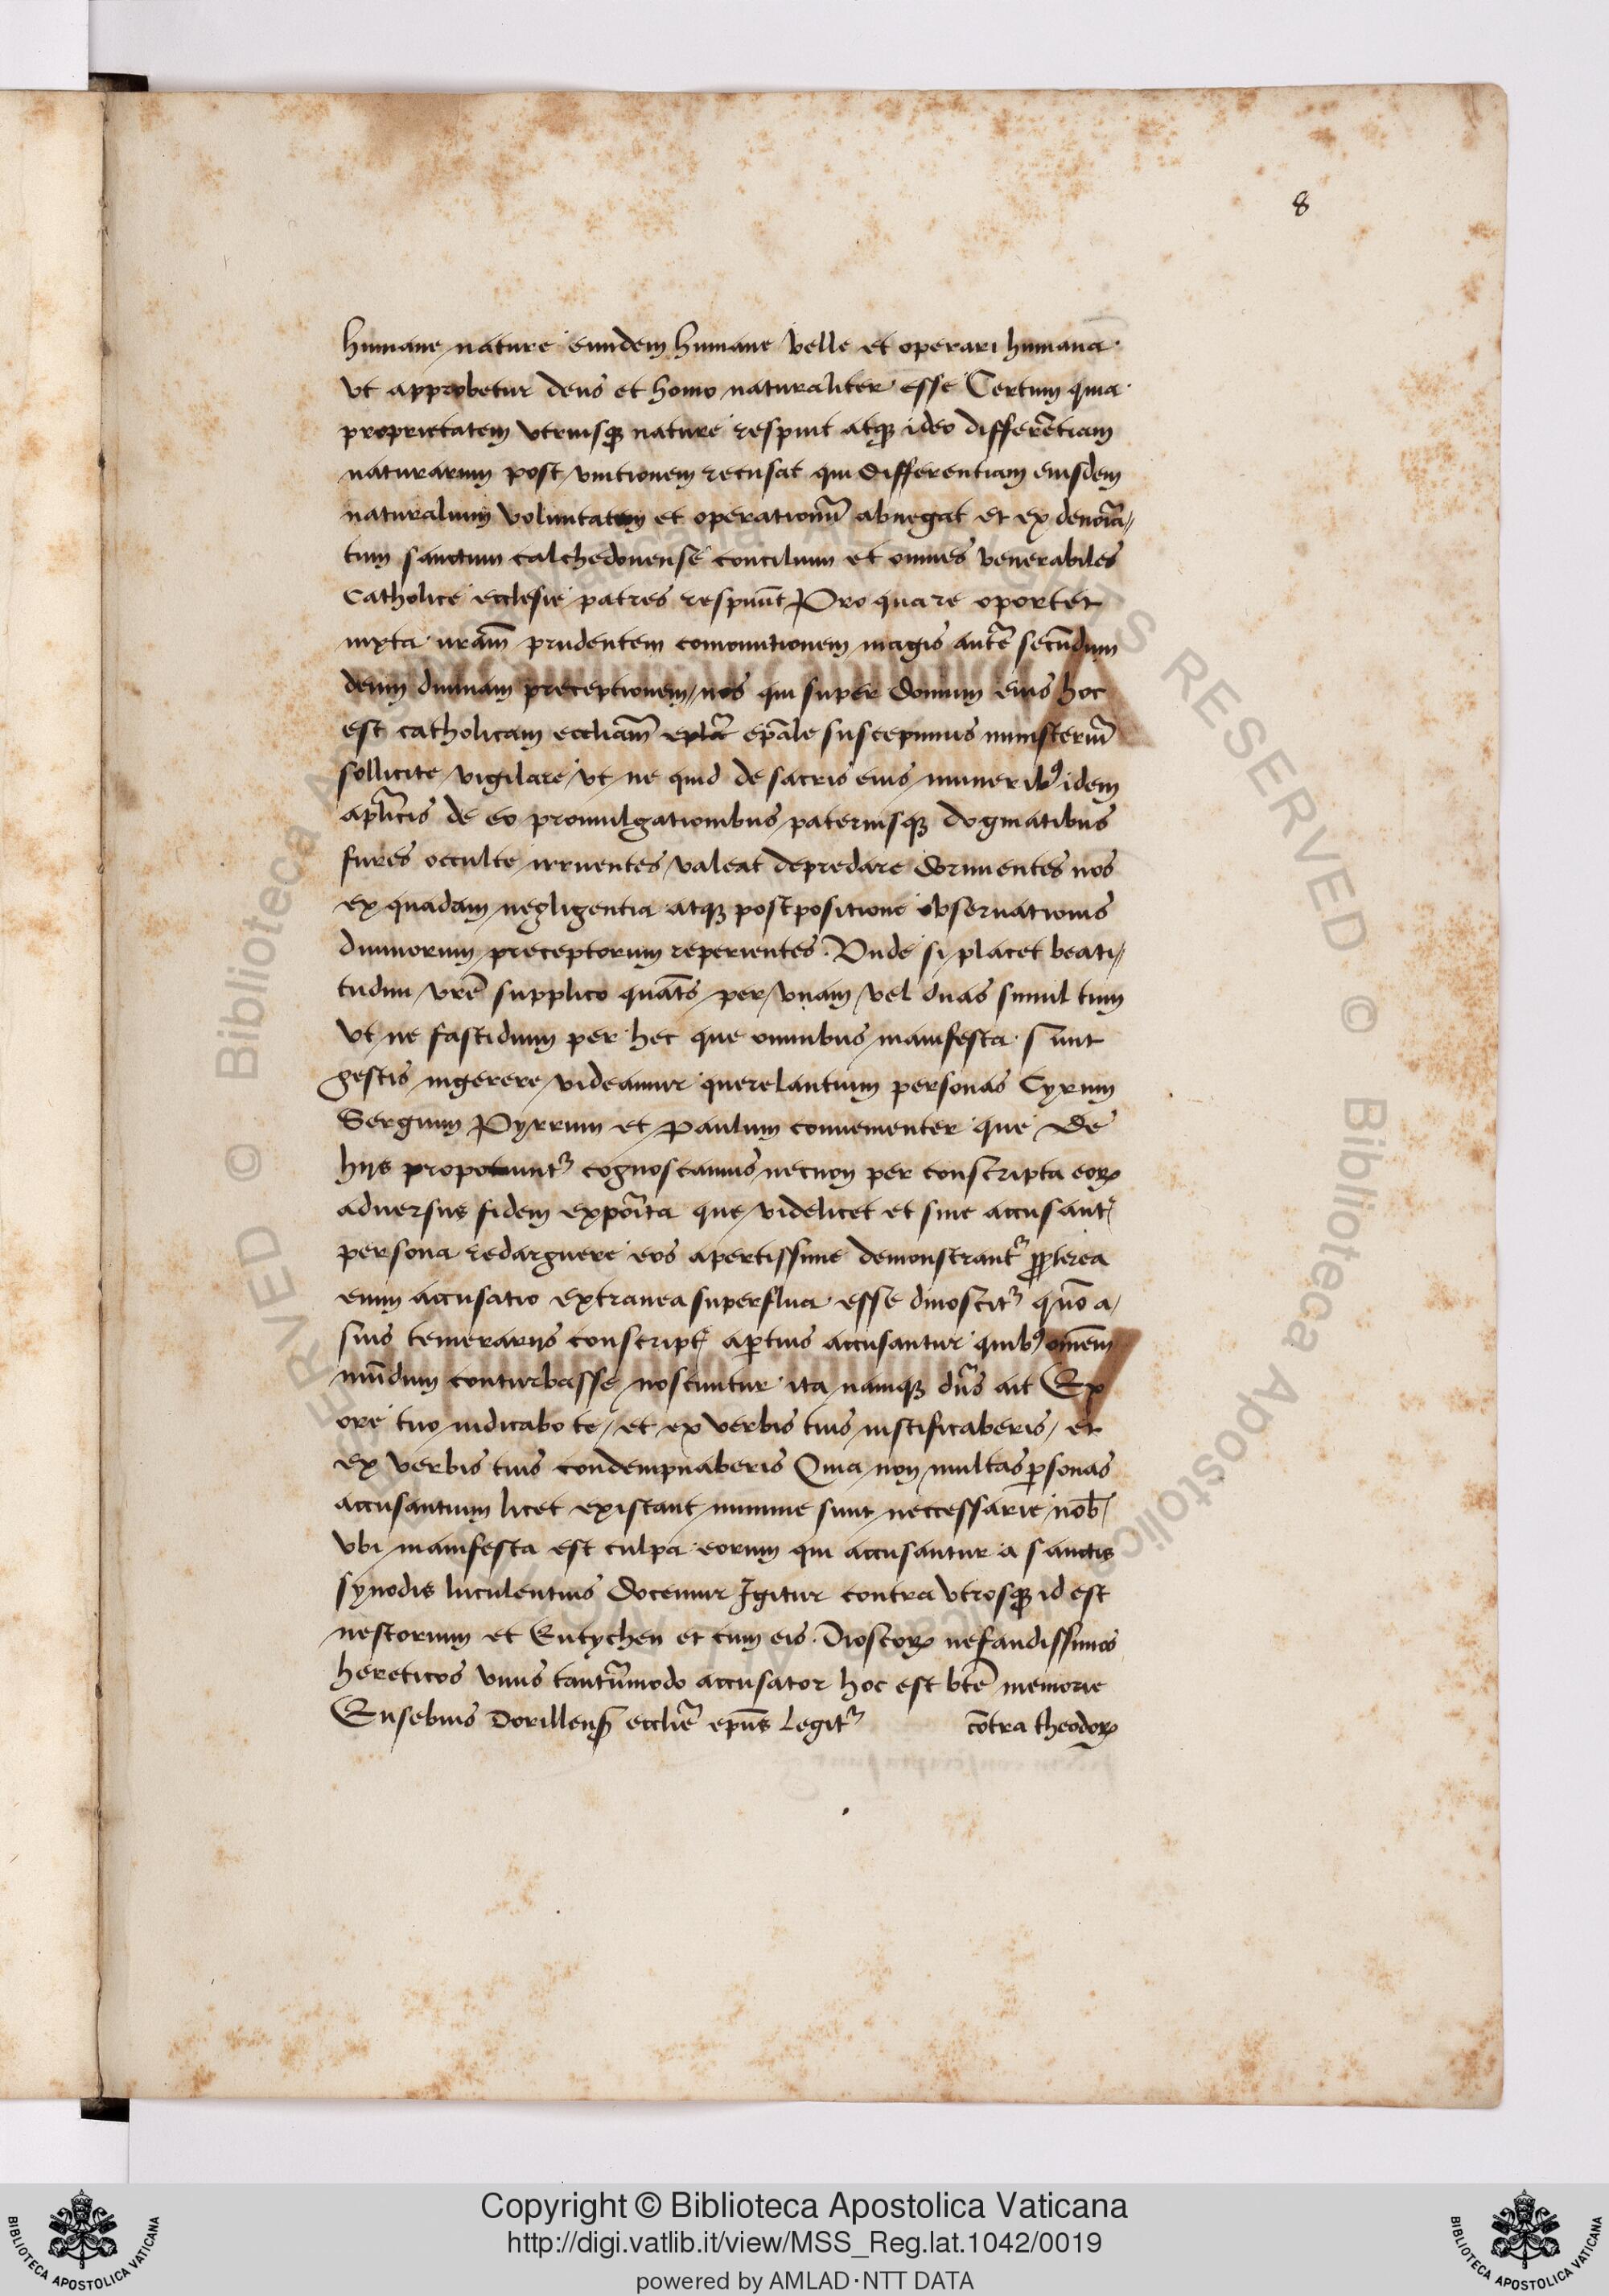 8
humane nature eundem humane velle et operari humana
vt approbetur deus et homo naturaliter esse Certum quia
proprietatem vtriusqꝫ nature respuit atqꝫ ideo differētiam
naturarum post vnitionem recusat qui differentiam eiusdem
naturalium voluntatem et operationū abnegat et ex denoīa„
tum sanctum calchedonense concilium et omnes venerabiles
Catholice ecclesie patres respuūt Pro qua re oportet
iuxta vrām prudentem comonitionem magis autē secūdum
deum diuinam preceptionem nos qui super domum eius hoc
est catholicam eccliam̄ ep̄ale suscepimus ministeriū
sollicite vigilare vt ne quid de sacris eius muneribꝰ idem
apl̄icis de eo promulgationibus paternisqꝫ dogmatibus
fures occulte irruentes valeat depredare dormientes nos
ex quadam negligentia atqꝫ postpositione obseruationis
diuinorum preceptorum reperientes. Vnde si placet beati„
tudini vrē supplico quāts per vnam vel duas simul tum
vt ne fastidium per hec que omnibus manifesta sunt
gestis ingerere videamur querelantium personas Cyrum
Sergium Pyrrum et Paulum conuenienter que de
hijs propotuntᷣ cognoscamus necnon per conscripta eoꝝ
aduersus fidem expoīta que videlicet et sine accusantꝭ
persona redarguere eos apertissime demonstrantᷣ ꝓpterea
enim accusatio extranea superflua esse dinoscitᷣ quō a
suis temerarijs conscriptꝭ aꝑtius accusantur quibꝰ omēm
mūdum conturbasse noscuntur ita namqꝫ dn̄s ait Ex
ore tuo iudicabo te„ et ex verbis tuis iustificaberis, et
ex verbis tuis condempnaberis Quia non multas ꝑsonas
accusantium licet existant minime sunt neccessarie nob̄
vbi manifesta est culpa eorum qui accusantur a sanctis
synodis luculentius docemur Igitur contra vtrosqꝫ id est
nestorium et Eutychen et cum eis. Dioscoꝝ nefandissimos
hereticos vnus tantūmodo accusator hoc est btē memorie
Eusebius Dorillenſ ecclie̅ ep̄us legitᷣ cōtra theodoꝝ
Copyright © Biblioteca Apostolica Vaticana
http://digi.vatlib.it/view/MSS_Reg.lat.1042/0019
powered by AMLAD·NTT DATA
BIBLIOTECA APOSTOLICA VATICANA
BIBLIOTECA APOSTOLICA VATICANA